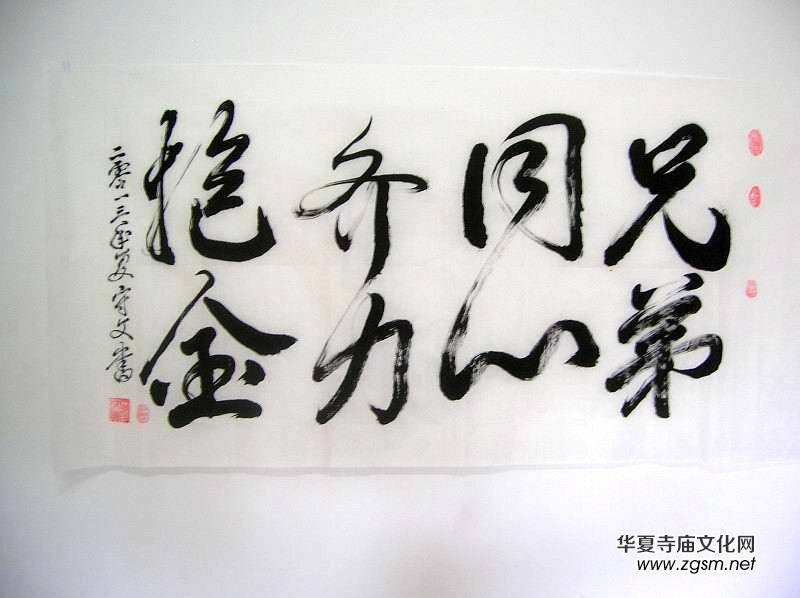 兄弟
同心
齐力
抱金
二零一三年夏守文书
华夏寺庙文化网
www.zgsm.net